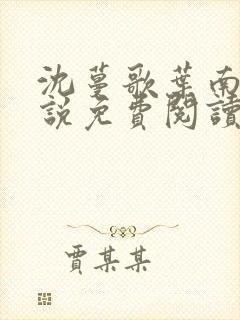 沈蔓歌葉南
說免費閱讀
賈某某